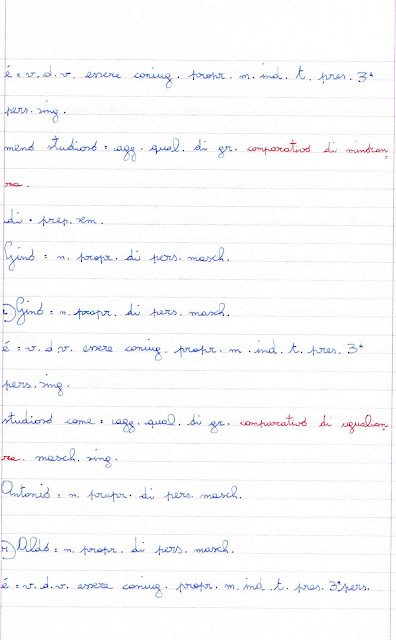 é = v. d. v. essere coniug. propr. m. ind. t. pres. 3ª
pers. sing.
meno studioso = agg. qual. di gr. comparativo di minoran
za.
di = prep. sem.
Gino = n. propr. di pers. masch.
Gino = n. propr. di pers. masch.
é = v. d. v. essere coniug. propr. m. ind. t. pres. 3ª
pers. sing.
studioso come = agg. qual. di gr. comparativo di uguaglian
za. masch. sing.
Antonio = n. propr. di pers. masch.
Aldo = n. propr. di pers. masch.
é = v. d. v. essere coniug. propr. m. ind. t. pres. 3ª pers.